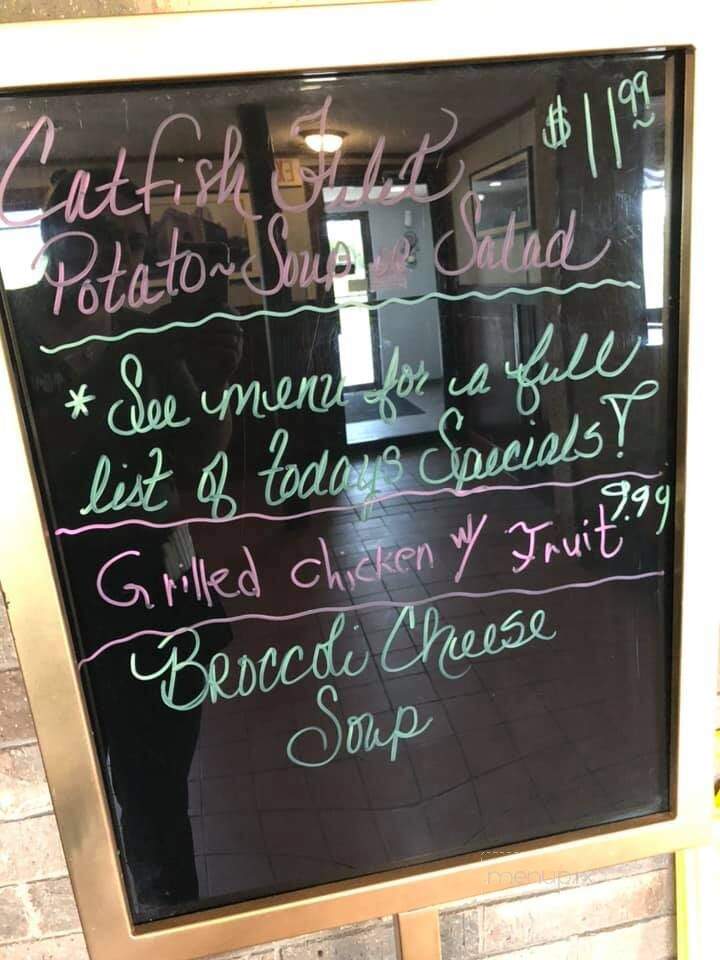 Catfish Filet $11.99
Potato~Soup or Salad
* See menu for a full
list of todays Specials!
Grilled chicken w/ Fruit 9.99
Broccoli Cheese
Soup
menupix